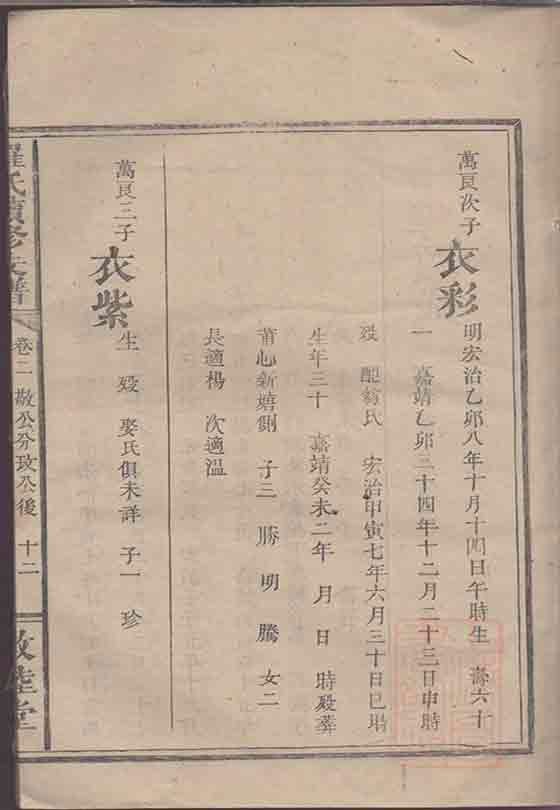 萬良次子 衣彩
明宏治乙卯八年十月十四日午時生 壽六十
一 嘉靖乙卯三十四年十二月二十三日申時
歿 配翁氏 宏治甲寅七年六月三十日巳時
生年三十 嘉靖癸未二年 月 日 時歿葬
莆心新塘側 子三 勝 明 騰 女二
長適楊 次適溫
萬良三子 衣紫
生 歿 娶氏俱未詳 子一 珍
羅氏續修族譜
卷二 敬公分政公後 十二
敦睦堂